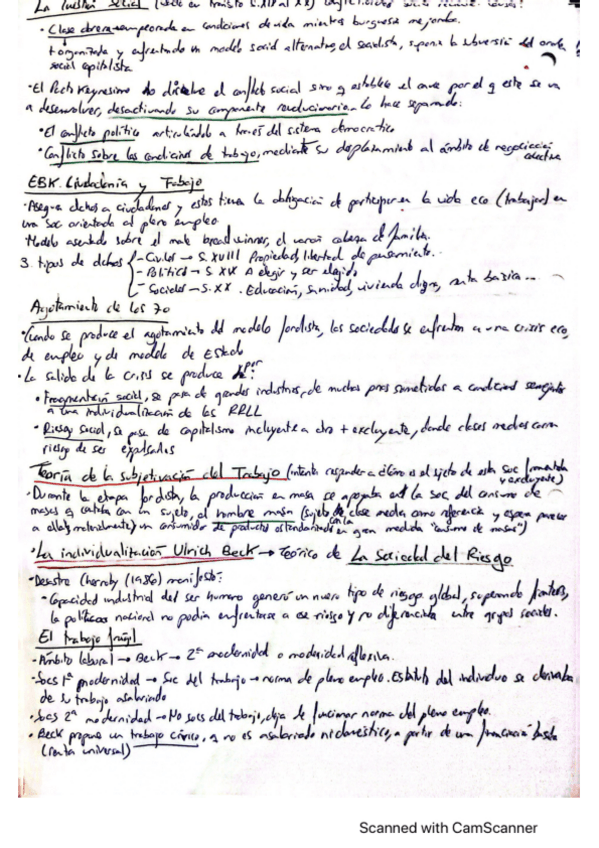 La Cuestión Social
· Clase obrera empeorada en condiciones de vida mientras burguesía mejoraba.
+ organizada y enfrentando un modelo social alternativo, el socialista, suponía la subversión del orden
social capitalista
· El Pacto Keynesiano no disuelve el conflicto social sino q establece el cauce por el q este se va
a desenvolver, desactivando su componente revolucionario. Lo hace separando:
· El conflicto político articulándolo a través del sistema democrático
· Conflicto sobre las condiciones de trabajo, mediante su desplazamiento al ámbito de negociación
colectiva
EBK. Ciudadanía y Trabajo
· Asegura dchos a ciudadanos y estos tienen la obligación de participar en la vida eco (trabajar) en
una soc orientada al pleno empleo
· Modelo asentado sobre el male breadwinner, el varón cabeza d familia.
3. tipos de dchos
- Civiles → S. XVIII Propiedad, libertad de pensamiento.
- Políticos → S. XIX A elegir y ser elegido
- Sociales → S. XX. Educación, sanidad, vivienda digna, renta básica...
Agotamiento de los 70
· Cuando se produce el agotamiento del modelo fordista, las sociedades se enfrentan a una crisis eco,
de empleo y de modelo de Estado
· La salida de la crisis se produce
· Fragmentación social, se pasa de grandes industrias, de muchas pers sometidas a condicions semejantes
a una individualización de las RRLL
· Riesgo social, se pasa de capitalismo incluyente a otro + excluyente, donde clases medias corren
riesgo de ser expulsadas
Teoría de la subjetivación del Trabajo (intenta responder a cómo es el sujeto de esta soc fragmentada
y excluyente)
· Durante la etapa fordista, la producción en masa se apoyaba en la soc. del consumo de
masas q contaba con un sujeto, el hombre masa (sujeto de clase media como referencia y espera parecer
a ellos materialmente) un consumidor de productos estandarizados en gran medida "consumo de masas")
· La individualización Ulrich Beck → Teórico de La Sociedad del Riesgo
· Desastre Chernóby (1986) manifestó:
· Capacidad industrial del ser humano generó un nuevo tipo de riesgo global, superando fronteras,
la políticas nacional no podían enfrentarse a ese riesgo y no diferenciaba entre grupos sociales.
El trabajo frágil
· Ámbito laboral → Beck → 2ª modernidad o modernidad reflexiva.
· Socs 1ª modernidad → Soc del trabajo → norma de pleno empleo. Estabitch del individuo se derivaba
de su trabajo asalariado
· Socs 2ª modernidad → No socs del trabajo, deja de funcionar norma del pleno empleo.
· Beck propone un trabajo cívico, q no es asalariado ni doméstico, a partir de una financiación básica
(renta universal)
Scanned with CamScanner